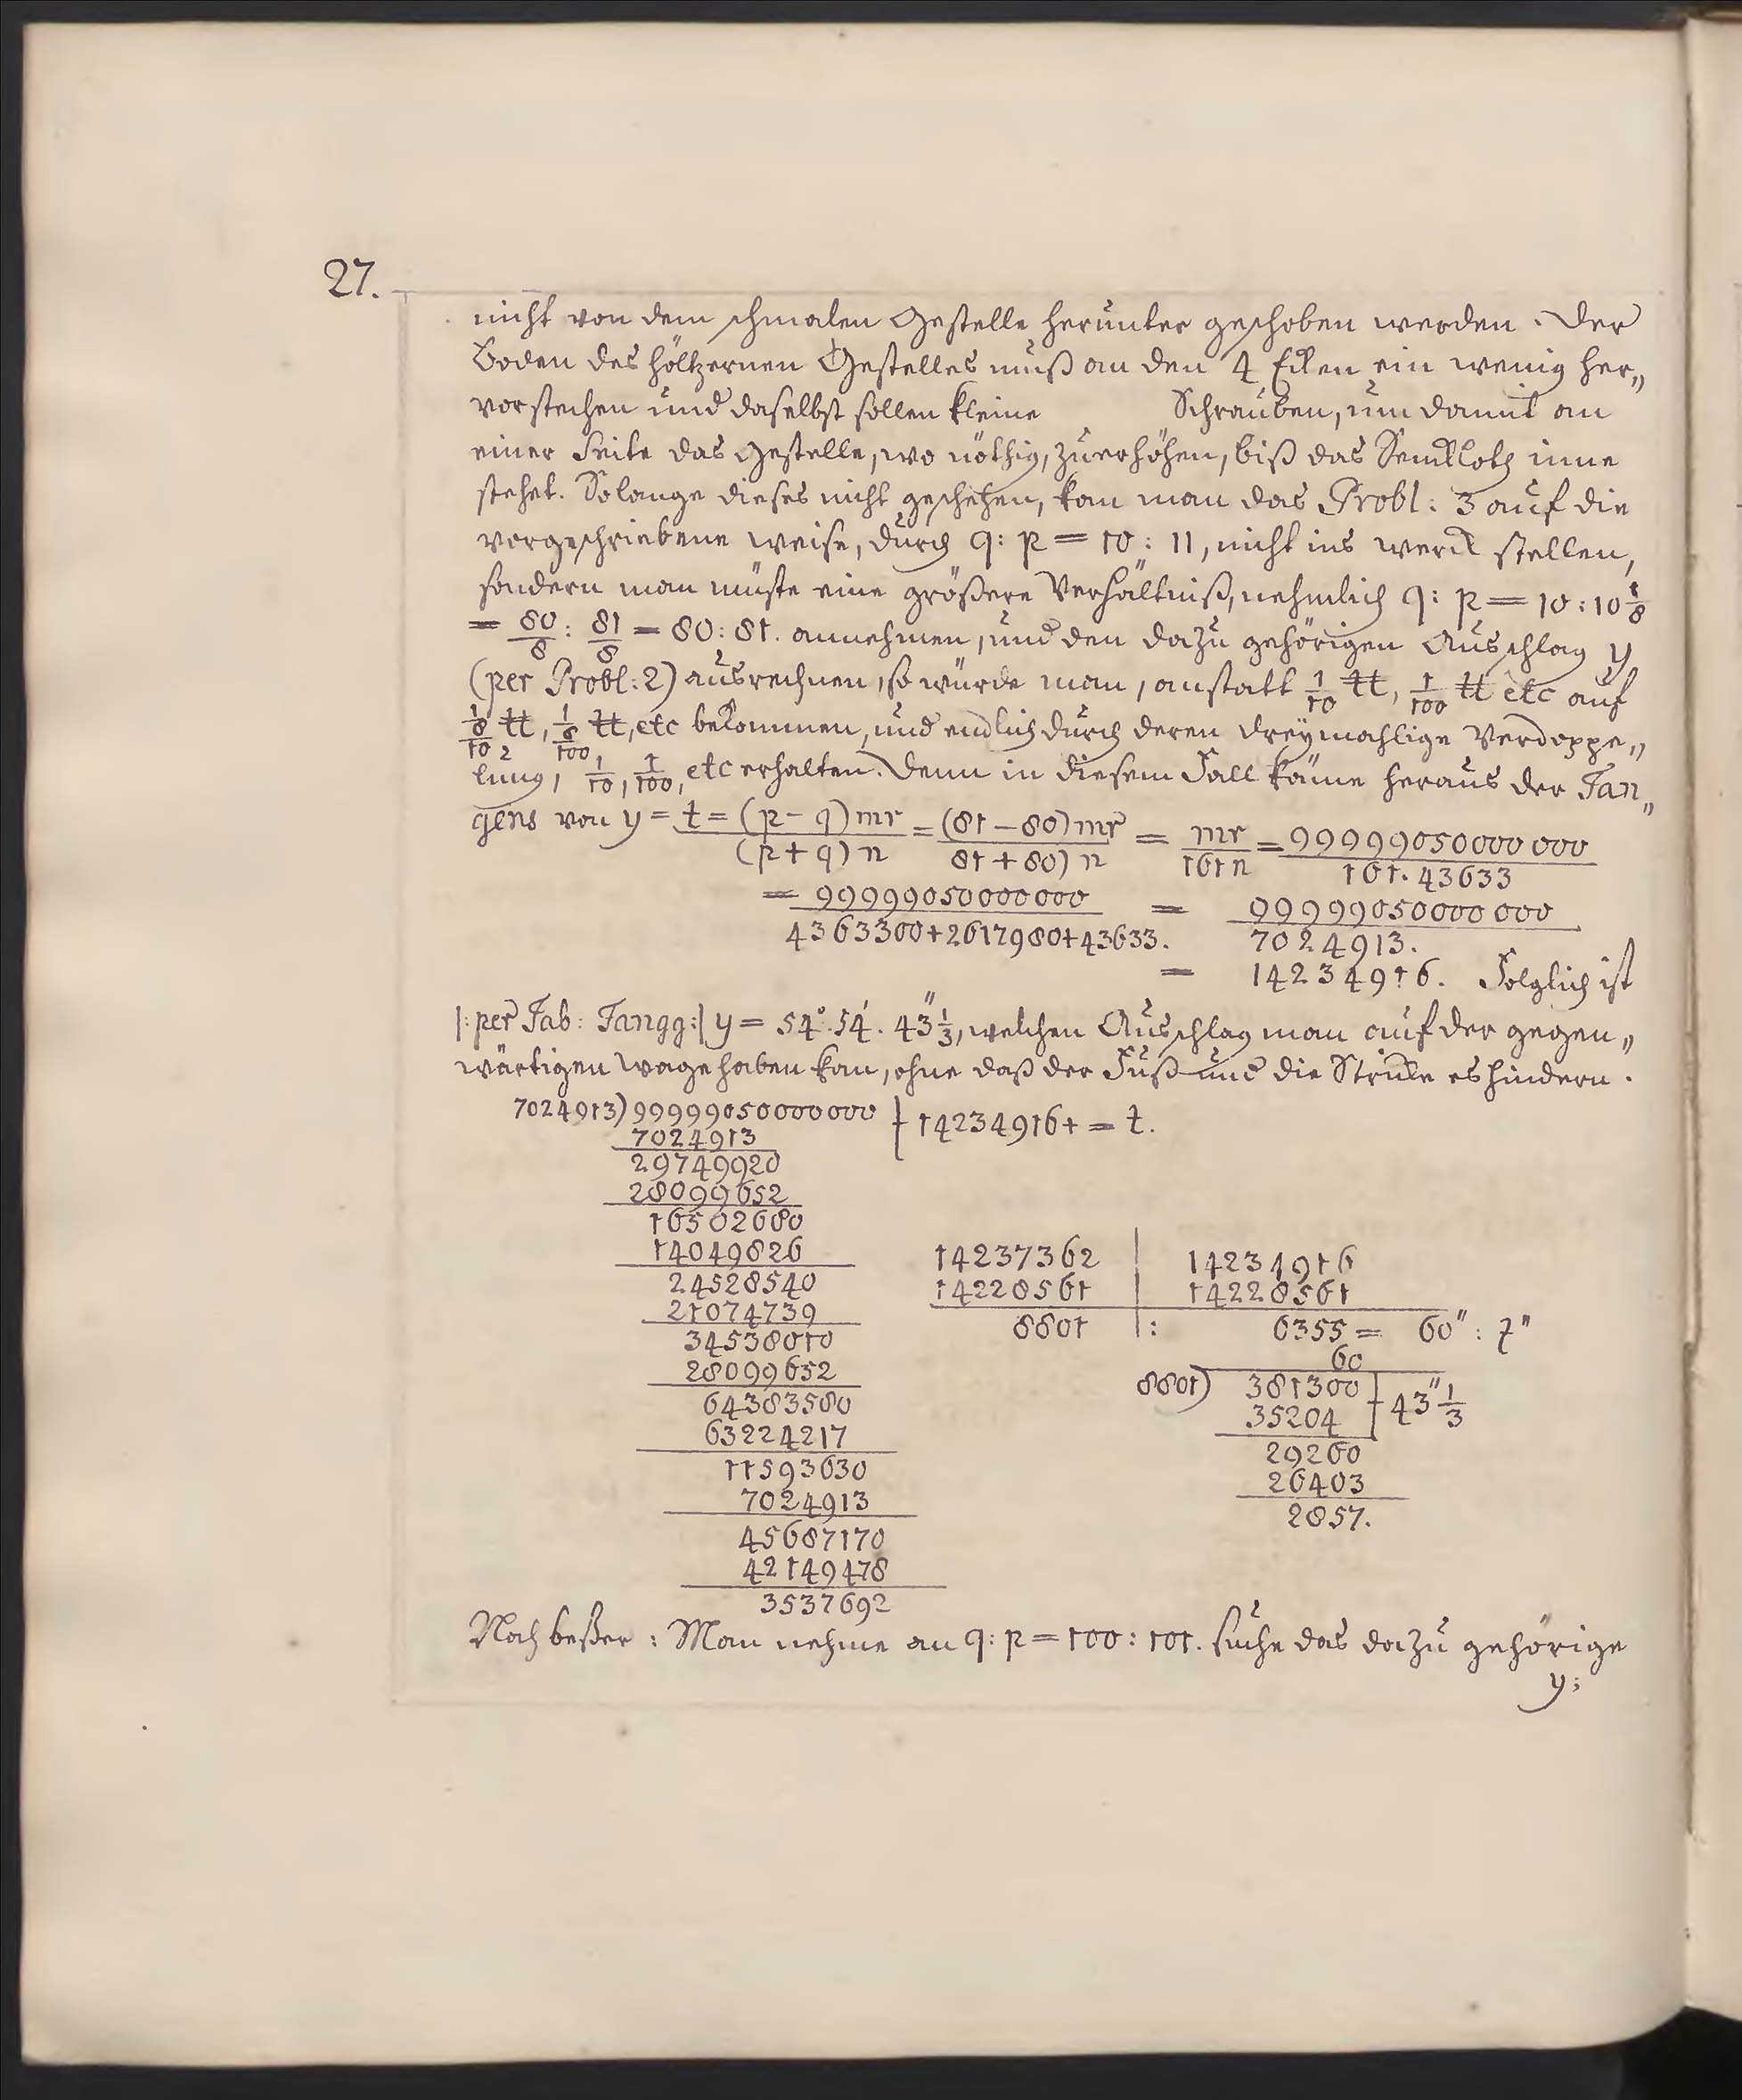 27.
nicht von dem schmalen Gestelle herunter geschoben werden. Der
Boden des höltzernen Gestelles muß an den 4 Ecken ein wenig her„
vorstechen und daselbst sollen kleine Schrauben, um damit an
einer Seite das Gestelle, wo nöthig, zuerhöhen, biß das Senckloth inne
stehet. Solange dieses nicht geschehen, kan man das Probl: 3 auf die
vorgeschriebene weise, durch q: p = 10: 11, nicht ins werck stellen,
sondern man müste eine größere Verhältniß, nehmlich q: p = 10:10 1/8
= 80/8 : 81/8 = 80:81. annehmen, und den dazu gehörigen Ausschlag y
(per Probl:2) ausrechnen, so würde man, anstatt 1/10 ℔, 1/100 ℔ etc auf
1/8/10 ℔, 1/8/100 ℔, etc bekommen, und endlich durch deren dreymahlige Verdoppe„
lung, 1/10, 1/100, etc erhalten. Denn in diesem Fall käme heraus der Tan„
gens von y = t = (p-q)mr/(p+q)n = (81-80)mr/81+80)n = mr/161n = 99999050000000/161.43633
= 99999050000000/4363300+2617980+43633. = 99999050000000/7024913.
= 14234916. Folglich ist
|:per Tab: Tangg:| y = 54°.54'.43"1/3, welchen Ausschlag man auf der gegen„
wärtigen Wage haben kan, ohne daß der Fuß und die Stricke es hindern.
7024913) 99999050000000 | 14234916+ = t.
7024913
29749920
28099652
16502680
14049826
24528540
21074739
34538010
28099652
64383580
63224217
11593630
7024913
45687170
42149478
3537692
14237362 | 14234916
14228561 | 14228561
8801 |: 6355 = 60" : z"
60
8801) 381300 | 43"1/3
35204
29260
26403
2857.
Noch beßer: Man nehme an q: p = 100: 101. suche das dazu gehörige
y;